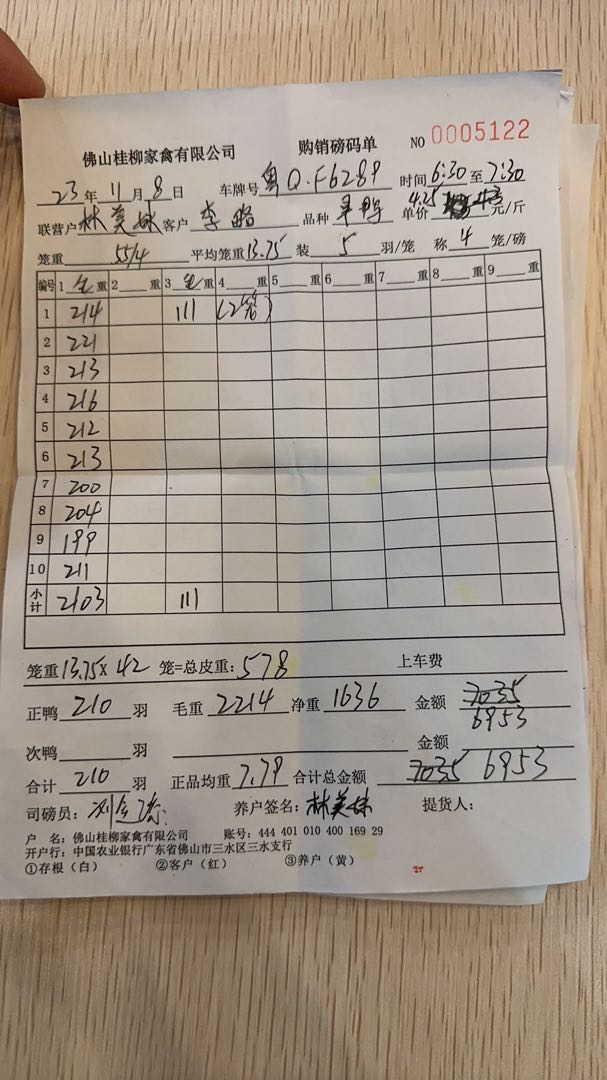 佛山桂柳家禽有限公司 购销磅码单 NO 0005122
23年11月8日 车牌号粤Q·F6289 时间6:30至7:30
联营户林美妹 客户李略 品种 单价4.25 元/斤
笼重55/4 平均笼重13.75 装5羽/笼 称4笼/磅
编号 1毛重 2重 3毛重 4重 5重 6重 7重 8重 9重
1 214 111 (2笼)
2 221
3 213
4 216
5 212
6 213
7 200
8 204
9 199
10 211
小计 2103 111
笼重13.75×42笼=总皮重:578 上车费
正鸭210羽 毛重2214 净重1636 金额7035
6953
次鸭羽 金额
合计210羽 正品均重7.79 合计总金额7035 6953
司磅员: 养户签名:林美妹 提货人:
户 名:佛山桂柳家禽有限公司 账号:444 401 010 400 169 29
开户行:中国农业银行广东省佛山市三水区三水支行
①存根(白) ②客户(红) ③养户(黄)